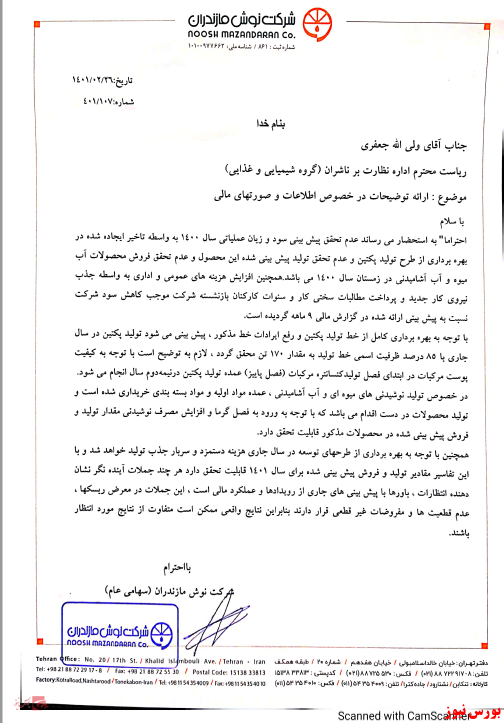 شرکت نوش مازندران
NOOSH MAZANDARAN Co.
شماره ثبت : ۸۶۱ / شناسه ملی: ۱۰۱۰۰۹۷۷۶۶۲
تاریخ:۱۴۰۱/۰۲/۲۶
شماره:۴۰۱/۱۰۷
بنام خدا
جناب آقای ولی الله جعفری
ریاست محترم اداره نظارت بر ناشران (گروه شیمیایی و غذایی)
موضوع : ارائه توضیحات در خصوص اطلاعات و صورتهای مالی
با سلام
احتراما" به استحضار می رساند عدم تحقق پیش بینی سود و زیان عملیاتی سال ۱۴۰۰ به واسطه تاخیر ایجاده شده در
بهره برداری از طرح تولید پکتین و عدم تحقق تولید پیش بینی شده این محصول و عدم تحقق فروش محصولات آب
میوه و آب آشامیدنی در زمستان سال ۱۴۰۰ می باشد.همچنین افزایش هزینه های عمومی و اداری به واسطه جذب
نیروی کار جدید و پرداخت مطالبات سختی کار و سنوات کارکنان بازنشسته شرکت موجب کاهش سود شرکت
نسبت به پیش بینی ارائه شده در گزارش مالی ۹ ماهه گردیده است.
با توجه به بهره برداری کامل از خط تولید پکتین و رفع ایرادات خط مذکور ، پیش بینی می شود تولید پکتین در سال
جاری با ۸۵ درصد ظرفیت اسمی خط تولید به مقدار ۱۷۰ تن محقق گردد ، لازم به توضیح است با توجه به کیفیت
پوست مرکبات در ابتدای فصل تولیدکنسانتره مرکبات (فصل پاییز) عمده تولید پکتین درنیمه‌دوم سال انجام می شود.
در خصوص تولید نوشیدنی های میوه ای و آب آشامیدنی ، عمده مواد اولیه و مواد بسته بندی خریداری شده است و
تولید محصولات در دست اقدام می باشد که با توجه به ورود به فصل گرما و افزایش مصرف نوشیدنی مقدار تولید و
فروش پیش بینی شده در محصولات مذکور قابلیت تحقق دارد.
همچنین با توجه به بهره برداری از طرحهای توسعه در سال جاری هزینه دستمزد و سربار جذب تولید خواهد شد و با
این تفاسیر مقادیر تولید و فروش پیش بینی شده برای سال ۱۴۰۱ قابلیت تحقق دارد هر چند جملات آینده نگر نشان
دهنده انتظارات ، باورها با پیش بینی های جاری از رویدادها و عملکرد مالی است ، این جملات در معرض ریسکها ،
عدم قطعیت ها و مفروضات غیر قطعی قرار دارند بنابراین نتایج واقعی ممکن است متفاوت از نتایج مورد انتظار
باشند.
بااحترام
شرکت نوش مازندران (سهامی عام)
شرکت نوش مازندران
NOOSH MAZANDARAN Co.
Tehran Office : No. 20 / 17th St. / Khalid Islambouli Ave. / Tehran - Iran
Tel: +98 21 88 72 29 17- 8 / Fax: +98 21 88 72 55 30 / Postal Code: 15138 33813
Factory: Kotra Road, Nashtarood / Tonekabon-Iran / Tel: +98 11 54 35 4009 / Fax: +98 11 54 35 4010
دفتر تهران: خیابان خالد اسلامبولی / خیابان هفدهم / شماره ۲۰ / طبقه همکف
تلفن: ۸-۸۸۷۲۲۹۱۷ (۰۲۱) / فکس: ۸۸۷۲۵۵۳۰ (۰۲۱) / کدپستی : ۳۳۸۱۳ ۱۵۱۳۸
کارخانه: تنکابن / نشتارود / جاده کترا / تلفن: ۵۴۳۵۴۰۰۹ (۰۱۱) / فکس: ۵۴۳۵۴۰۱۰ (۰۱۱)
بورس نیوز
Scanned with CamScanner